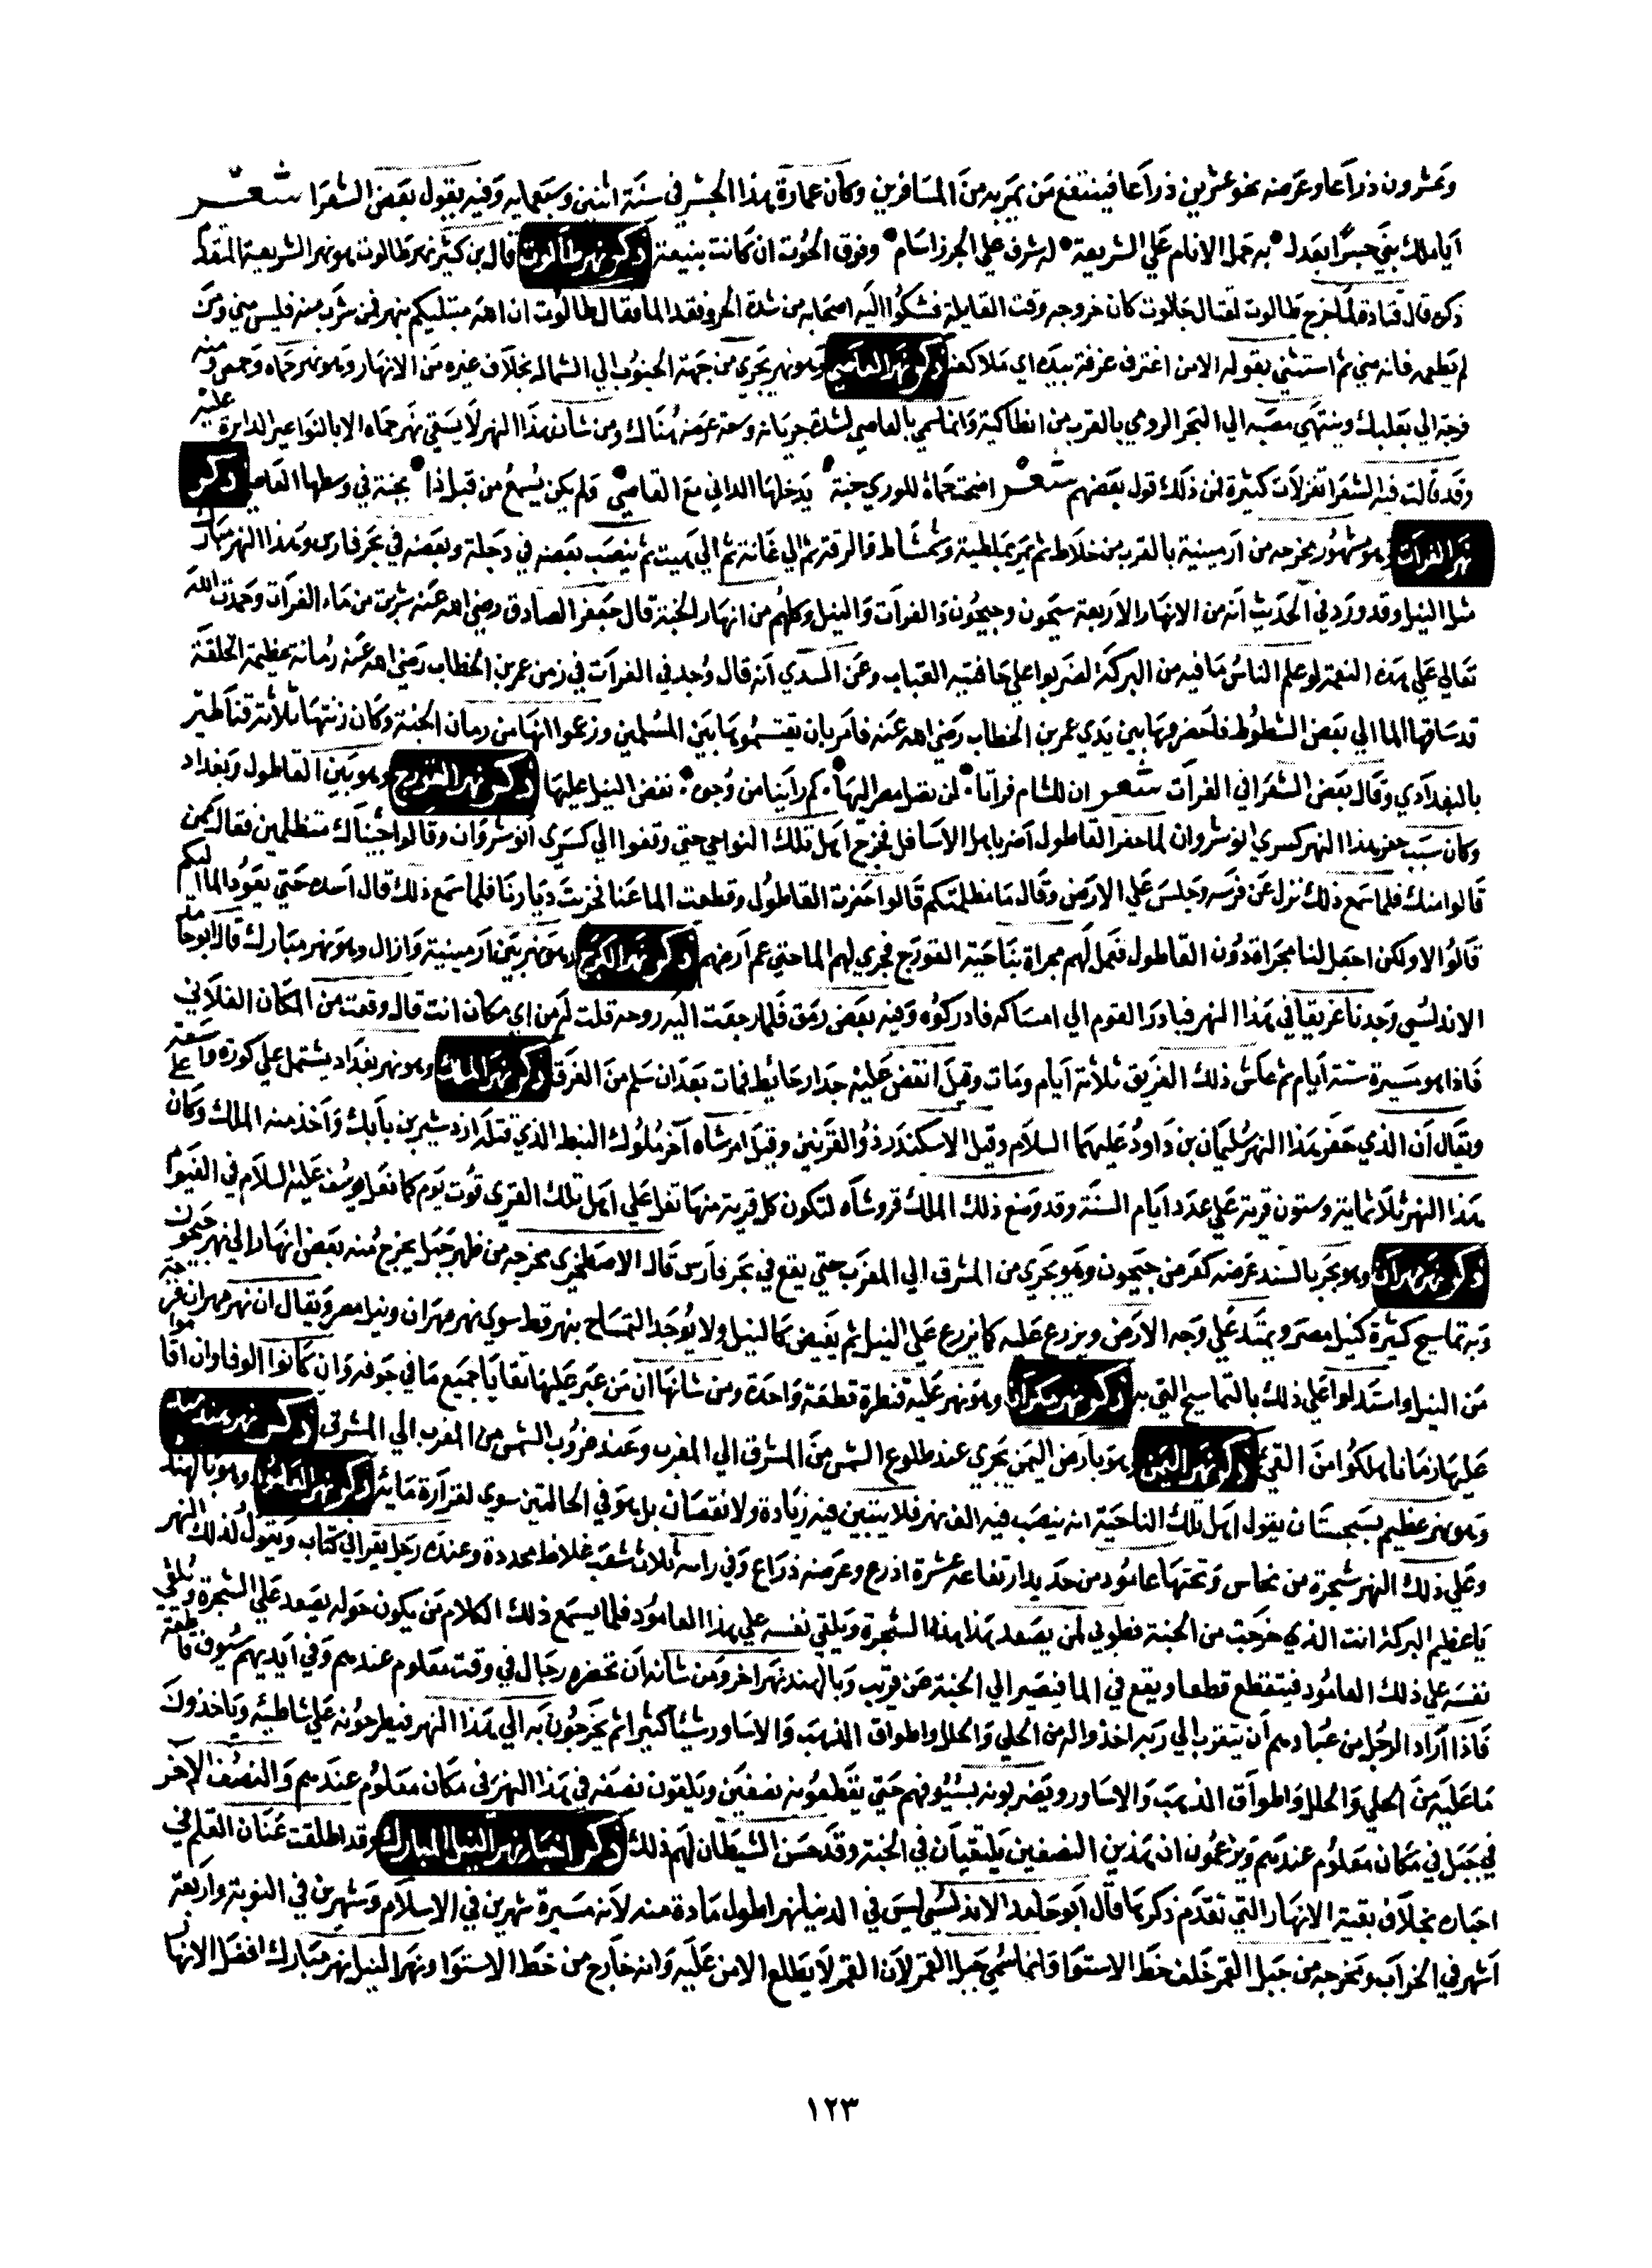 وعشرون ذراعا وعرضه نحو عشرين ذراعا فينتفع من يمر به من المسافرين وكان عمارة هذا الجسر في سنة اثنين وسبعمايه وفيه يقول بعض الشعرا شعر
اياملك بني جسرا بعدل به حمل الانام علي الشريعة له شرف علي الجرزا سام وفوق الحوت ان كانت بنيعة ذكر نهر طالوت قال بن كثير نهر طالوت هو نهر الشريعة المتقدم
ذكره قال قتادة لما خرج طالوت لقتال جالوت كان خروجه وقت القايلة فشكوا اليه اصحابه من شدة الحر وفقد الما فقال طالوت ان الله مبتليكم بنهر فمن شرب منه فليس مني ومن
لم يطعمه فانه مني ثم استثني بقوله الا من اغترف غرفة بيده اي ملا كفه ذكر نهر العاصي وهو نهر يجري من جهة الجنوب الي الشمال بخلاف غيره من الانهار وهو نهر حماه وحمص ومنه
فرجة الي بعلبك وينتهي مصبه الي البحر الرومي بالقرب من انطاكية وانما سمي بالعاصي لشدة جريانه وسعة عرضه هناك ومن شان هذا النهر لا يسقي نهر حماه الا بالنواعير الدايرة عليه
وقد قالت فيه الشعرا تغزلات كثيرة فمن ذلك قول بعضهم شعر اضحت حماة للوري جنة يدخلها الداني مع القاصي ولم يكن يسمع من قبل ذا بجنة في وسطها العاصي ذكر
نهر الفرات وهو مشهور مخرجه من ارمينية بالقرب من خلاط ثم يمر بملطية وشمشاط والرقة ثم الي غانة ثم الي هيت ثم ينصب بعضه في دجلة وبعضه في بحر فارس وهذا النهر مبارك
مثل النيل وقد ورد في الحديث انه من الانهار الاربعة سيحون وجيحون والفرات والنيل وكلهم من انهار الجنة قال جعفر الصادق رضي الله عنه شربت من ماء الفرات وحمدت الله
تعالي علي هذه النعمة لو علم الناس ما فيه من البركة لضربوا علي حافتيه القباب وعن السدي انه قال وجد في الفرات في زمن عمر بن الخطاب رضي الله عنه رمانة عظيمة الخلقة
قد ساقها الما الي بعض الشطوط فاحضروها بين يدي عمر بن الخطاب رضي الله عنه فامر بان يقتسموها بين المسلمين وزعموا انها من رمان الجنة وكان زنتها ثلاثة قناطير
بالبغدادي وقال بعض الشعرا في الفرات شعر ان للشام فراتا لن تصل مصر اليها كم راينا من وجوه نغض النيل عليها ذكر نهر القورج وهو بين القاطول وبغداد
وكان سبب حفر هذا النهر كسري انوشروان لما حفر القاطول اضر باهل الاسافل فخرج اهل تلك النواحي حتي وقفوا الي كسري انوشروان وقالوا جيناك متظلمين فقال ممن
قالوا منك فلما سمع ذلك نزل عن فرسه وجلس علي الارض وقال ما مظلمتكم قالوا حفرت القاطول وقطعت الما عنا فخربت ديارنا فلما سمع ذلك قال اسده حتي يعود الما اليكم
قالوا لا ولكن اجعل لنا مجراة دون القاطول فعمل لهم مجراة بناحية القورج فجري لهم الما حتي عم ارضهم ذكر نهر الكر وهو نهر بين ارمينية وازال وهو نهر مبارك قال ابو حامد
الاندلسي وجدنا غريقا في هذا النهر فبادر القوم الي امساكه فادركوه وفيه بعض رمق فلما رجعت اليه روحه قلت له من اي مكان انت قال وقعت من المكان الفلاني
فاذا هو مسيرة ستة ايام ثم عاش ذلك الغريق ثلاثة ايام ومات وقيل انقض عليه جدار حائط فمات بعد ان سلم من الغرق ذكر نهر الملك وهو نهر بغداد يشتمل علي كورة واسعة
ويقال ان الذي حفر هذا النهر سليمان بن داود عليهما السلام وقيل الاسكندر ذو القرنين وقيل امرشاه آخر ملوك النبط الذي قتله ازدشير بن بابك واخذ منه الملك وكان علي
هذا النهر ثلاثماية وستون قرية علي عدد ايام السنة وقد وضع ذلك الملك قروشاه لتكون كل قرية منها تغل علي اهل تلك القري قوت يوم كما فعل يوسف عليه السلام في الفيوم
ذكر نهر مهران وهو بحر بالسند عرضه كعرض جيحون وهو يجري من المشرق الي المغرب حتي يقع في بحر فارس قال الاصطخري مخرجه من ظهر جبل يخرج منه بعض انهار الي نهر جيحون
وبه تماسيح كثيرة كنيل مصر ويمتد علي وجه الارض ويزرع عليه كما يزرع علي النيل ثم يغيض كالنيل ولا يوجد التمساح بنهر قط سوي نهر مهران ونيل مصر ويقال ان نهر مهران فرجة
من النيل واستدلوا علي ذلك بالتماسيح التي به ذكر نهر مكران وهو نهر عليه قنطرة قطعة واحدة ومن شانها ان من عبر عليها تقايا جميع ما في جوفه وان كانوا الوفا وان اقاموا
عليها زمانا هلكوا من القيء ذكر نهر اليمن وهو بارض اليمن يجري عند طلوع الشمس من المشرق الي المغرب وعند غروب الشمس من المغرب الي المشرق ذكر نهر هندمند
وهو نهر عظيم بسجستان يقول اهل تلك الناحية انه ينصب فيه الف نهر فلا يتبين فيه زيادة ولا نقصان بل هو في الحالتين سوي لغزارة مائه ذكر نهر العامود وهو بالهند
وعلي ذلك النهر شجرة من نحاس وتحتها عامود من حديد ارتفاعه عشرة اذرع وعرضه ذراع وفي راسه ثلاث شعب غلاظ محددة وعنده رجل يقرا في كتاب ويقول لذلك النهر
يا عظيم البركة انت الذي خرجت من الجنة فطوبي لمن يصعد هذه الشجرة ويلقي نفسه علي هذا العامود فلما يسمع ذلك الكلام من يكون حوله يصعد علي الشجرة ويلقي
نفسه علي ذلك العامود فيتقطع قطعا ويقع في الما فيصير الي الجنة عن قريب وبالهند نهر اخر ومن شانه ان تحضره رجال في وقت معلوم عندهم وفي ايديهم سيوف قاطعة
فاذا اراد الرجل من عبادهم ان يتقرب الي ربه اخذوا له من الحلي والحلل واطواق الذهب والاساور شيئا كثيرا ثم يخرجون به الي هذا النهر فيطرحونه علي شاطيه وياخذون
ما عليه من الحلي والحلل واطواق الذهب والاساور ويضربونه بسيوفهم حتي يقطعونه نصفين ويلقون نصفه في هذا النهر في مكان معلوم عندهم والنصف الاخر
في جبل في مكان معلوم عندهم ويزعمون ان هذين النصفين يلتقيان في الجنة وقد حسن الشيطان لهم ذلك ذكر اخبار نهر النيل المبارك وقد اطلقت عنان القلم في
اخباره بخلاف بقية الانهار التي تقدم ذكرها قال ابو حامد الاندلسي ليس في الدنيا نهر اطول مادة منه لانه مسيرة شهرين في الاسلام وشهرين في النوبة واربعة
اشهر في الخراب ومخرجه من جبل القمر خلف خط الاستوا وانما سمي جبل القمر لان القمر لا يطلع الا من عليه وانه خارج من خط الاستوا ونهر النيل نهر مبارك افضل الانهار
١٢٣